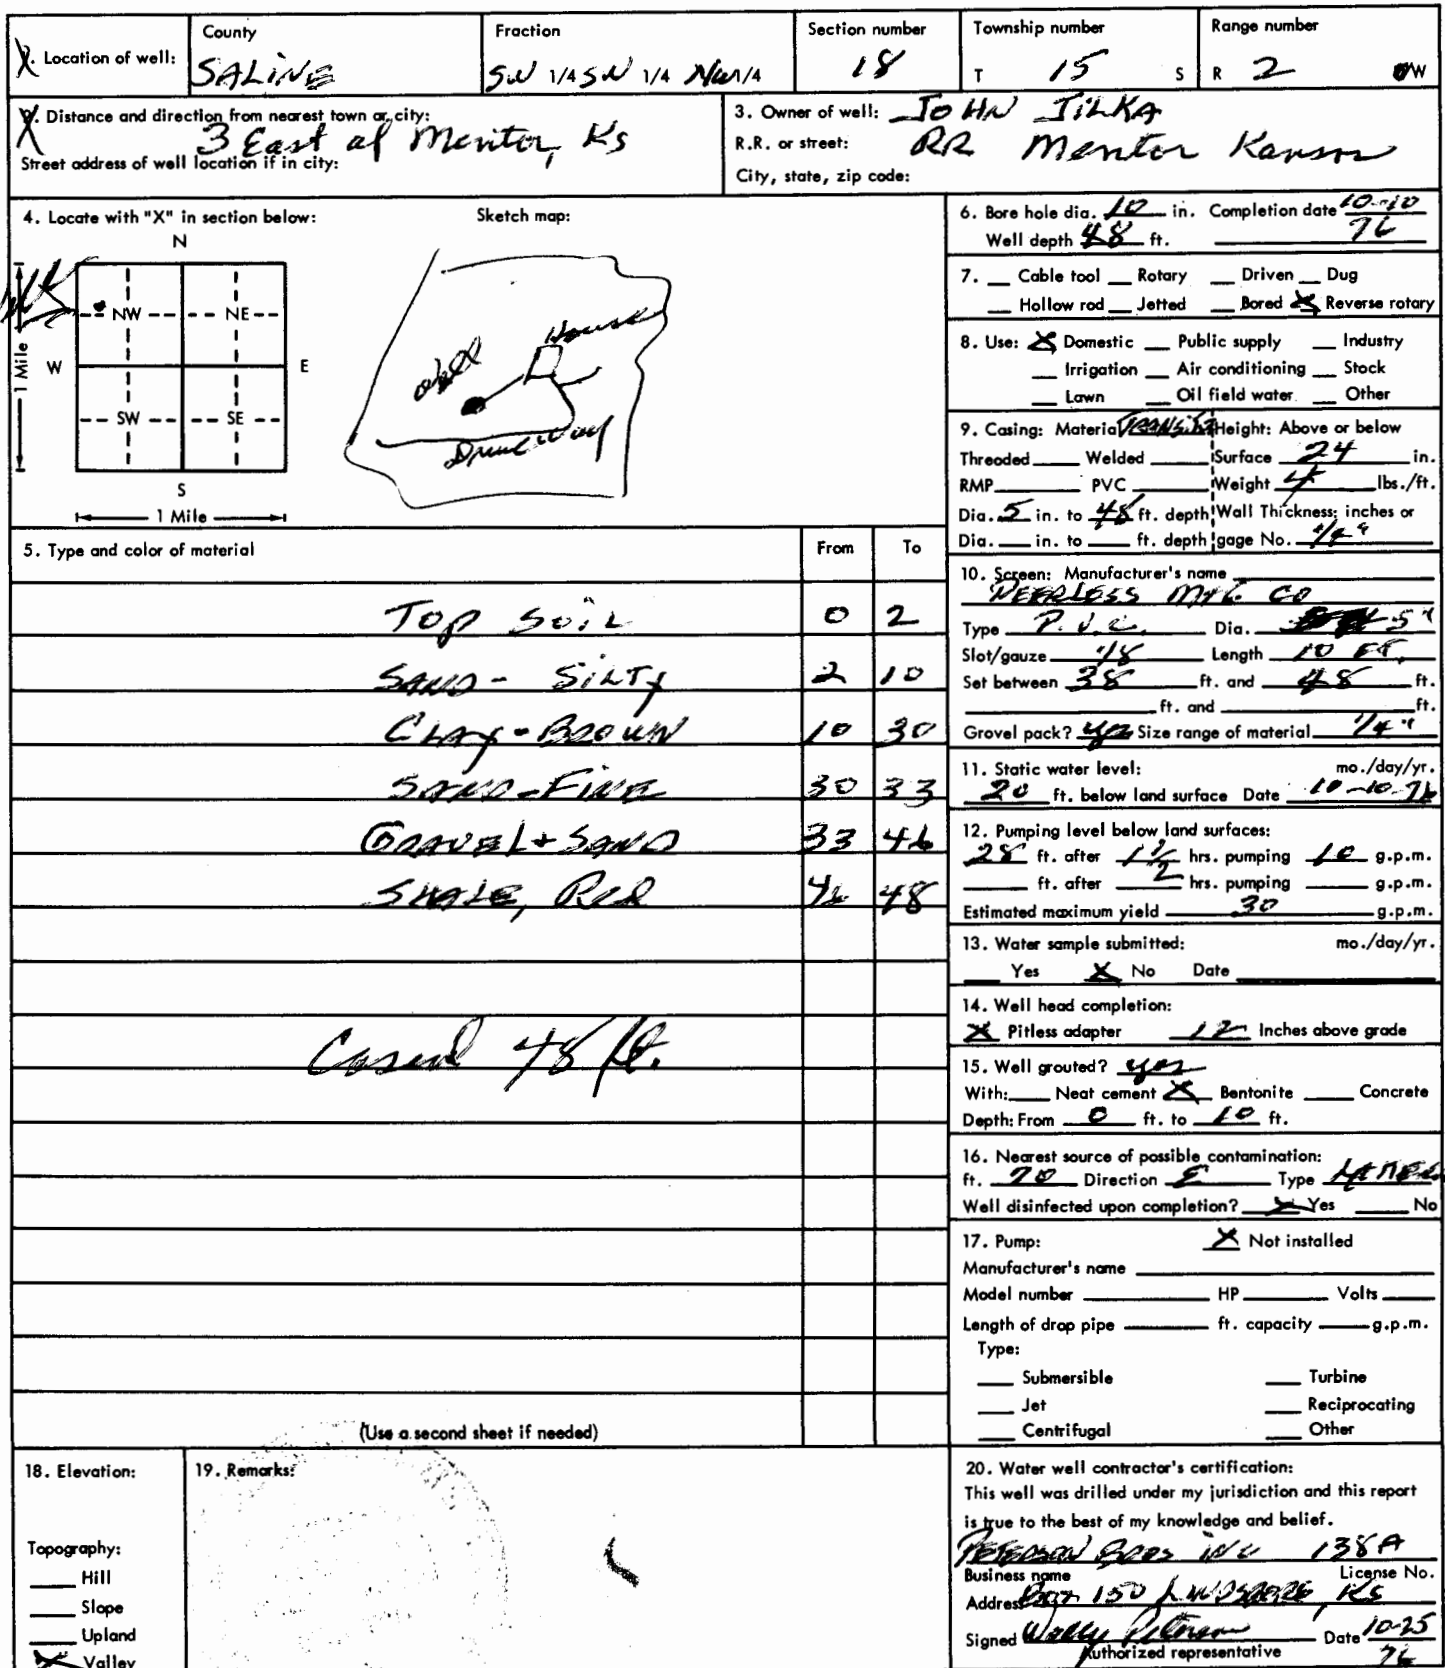 X. Location of well: County SALINE Fraction SW 1/4 SW 1/4 NW 1/4 Section number 18 Township number T 15 S Range number R 2 W
Distance and direction from nearest town or city: 3 East of Mentor, Ks
Street address of well location if in city:
3. Owner of well: JOHN JILKA
R.R. or street: RR Mentor Kansas
City, state, zip code:
4. Locate with "X" in section below: Sketch map:
N
NW NE
W E
1 Mile
SW SE
S
1 Mile
House
well
Driveway
5. Type and color of material From To
TOP SOIL 0 2
SAND - SILTY 2 10
CLAY - BROWN 10 30
SAND - FINE 30 33
GRAVEL + SAND 33 46
SHALE, Red 46 48
Cased 48 ft.
(Use a second sheet if needed)
6. Bore hole dia. 10 in. Completion date 10-10
Well depth 48 ft. 76
7. Cable tool Rotary Driven Dug
Hollow rod Jetted Bored X Reverse rotary
8. Use: X Domestic Public supply Industry
Irrigation Air conditioning Stock
Lawn Oil field water Other
9. Casing: Material TRANSITE Height: Above or below
Threaded Welded Surface 24 in.
RMP PVC Weight 4 lbs./ft.
Dia. 5 in. to 48 ft. depth Wall Thickness: inches or
Dia. in. to ft. depth gage No. 1/4"
10. Screen: Manufacturer's name
PEERLESS MFG CO
Type P.V.C. Dia. 5"
Slot/gauze 1/8 Length 10 FT.
Set between 38 ft. and 48 ft.
ft. and ft.
Gravel pack? yes Size range of material 1/4"
11. Static water level: mo./day/yr.
20 ft. below land surface Date 10-10-76
12. Pumping level below land surfaces:
28 ft. after 1 1/2 hrs. pumping 10 g.p.m.
ft. after hrs. pumping g.p.m.
Estimated maximum yield 30 g.p.m.
13. Water sample submitted: mo./day/yr.
Yes X No Date
14. Well head completion:
X Pitless adapter 12 Inches above grade
15. Well grouted? yes
With: Neat cement X Bentonite Concrete
Depth: From 0 ft. to 10 ft.
16. Nearest source of possible contamination:
ft. 70 Direction E Type
Well disinfected upon completion? X Yes No
17. Pump: X Not installed
Manufacturer's name
Model number HP Volts
Length of drop pipe ft. capacity g.p.m.
Type:
Submersible Turbine
Jet Reciprocating
Centrifugal Other
18. Elevation:
Topography:
Hill
Slope
Upland
X Valley
19. Remarks:
20. Water well contractor's certification:
This well was drilled under my jurisdiction and this report
is true to the best of my knowledge and belief.
PETERSON BROS INC 138A
Business name License No.
Address Box 150 LINDSBORG, KS
Signed Wally Peterson Date 10-25
Authorized representative 76